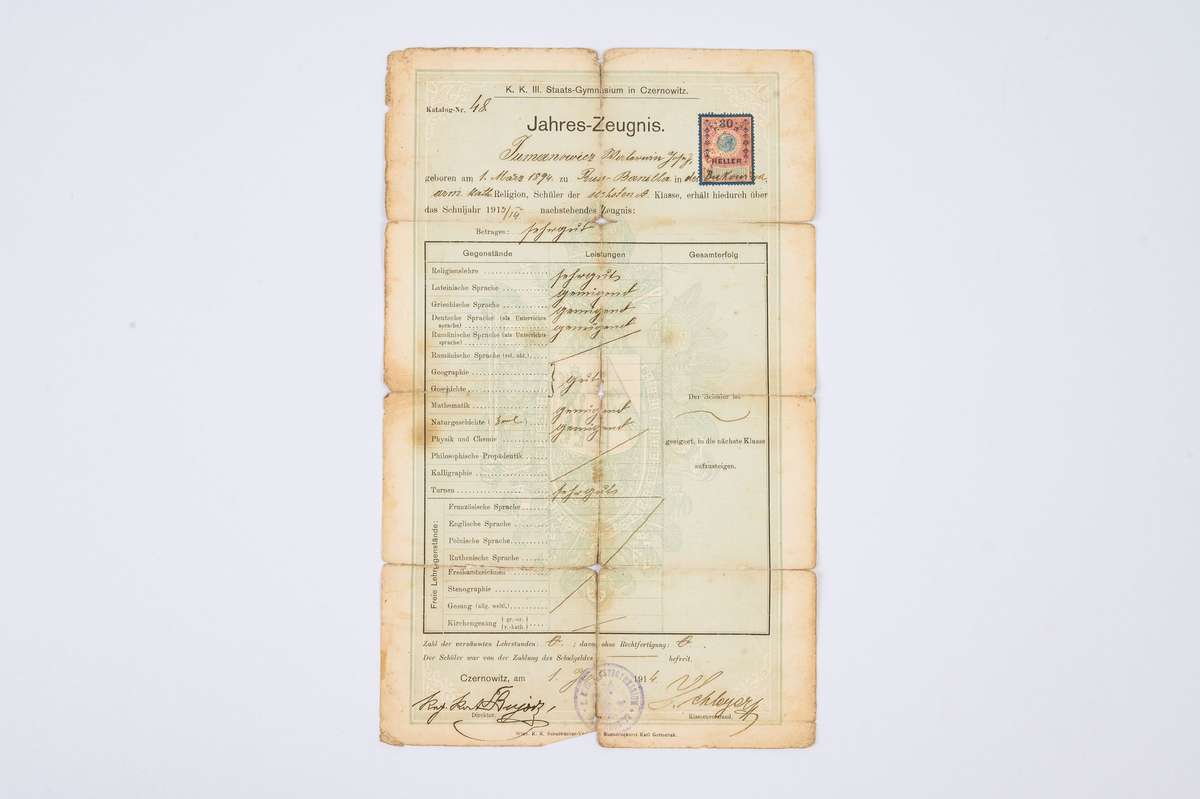 K. K. III. Staats-Gymnasium in Czernowitz.
Katalog-Nr. 48
Jahres-Zeugnis.
30
HELLER
Tumanowicz Josef,
geboren am 1. März 1894 zu Rus.-Banilla in der Bukowina
arm. kath. Religion, Schüler der Klasse, erhält hiedurch über
das Schuljahr 1913/14 nachstehendes Zeugnis:
Betragen: sehr gut
Gegenstände Leistungen Gesamterfolg
Religionslehre sehr gut
Lateinische Sprache genügend
Griechische Sprache genügend
Deutsche Sprache (als Unterrichts
sprache) genügend
Rumänische Sprache (als Unterrichts
sprache)
Rumänische Sprache (rel. obl.)
Geographie
Geschichte gut
Mathematik genügend
Naturgeschichte ( ) genügend
Physik und Chemie
Philosophische Propädeutik
Kalligraphie
Turnen sehr gut
Der Schüler ist
geeignet, in die nächste Klasse
aufzusteigen.
Freie Lehrgegenstände:
Französische Sprache
Englische Sprache
Polnische Sprache
Ruthenische Sprache
Freihandzeichnen
Stenographie
Gesang (allg. weltl.)
Kirchengesang (gr.-or.)
(r.-kath.)
Zahl der versäumten Lehrstunden: 0 ; davon ohne Rechtfertigung: 0
Der Schüler war von der Zahlung des Schulgeldes befreit.
Czernowitz, am 1. 1914
Direktor.
Klassenvorstand.